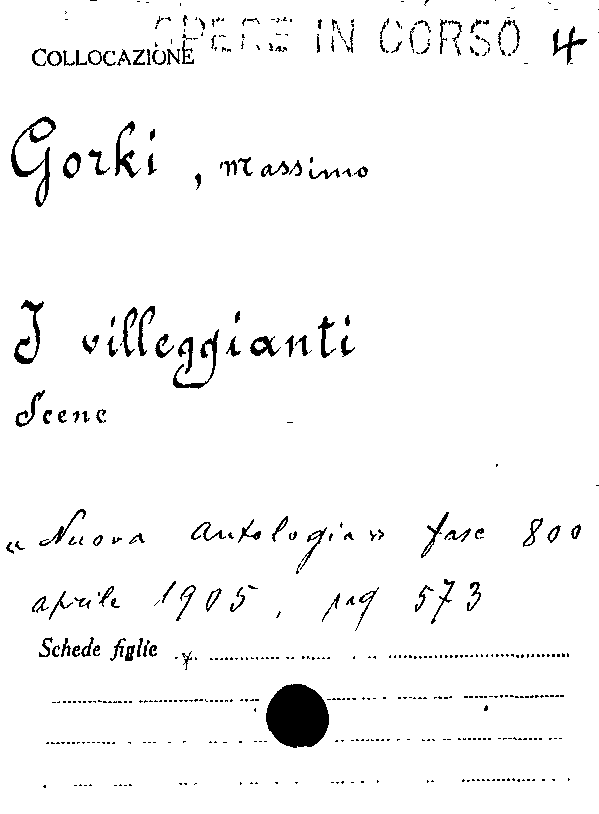 OPERE IN CORSO 4
COLLOCAZIONE
Gorki, Massimo
I villeggianti
Scene
« Nuova Antologia » fasc 800
aprile 1905, pag 573
Schede figlie